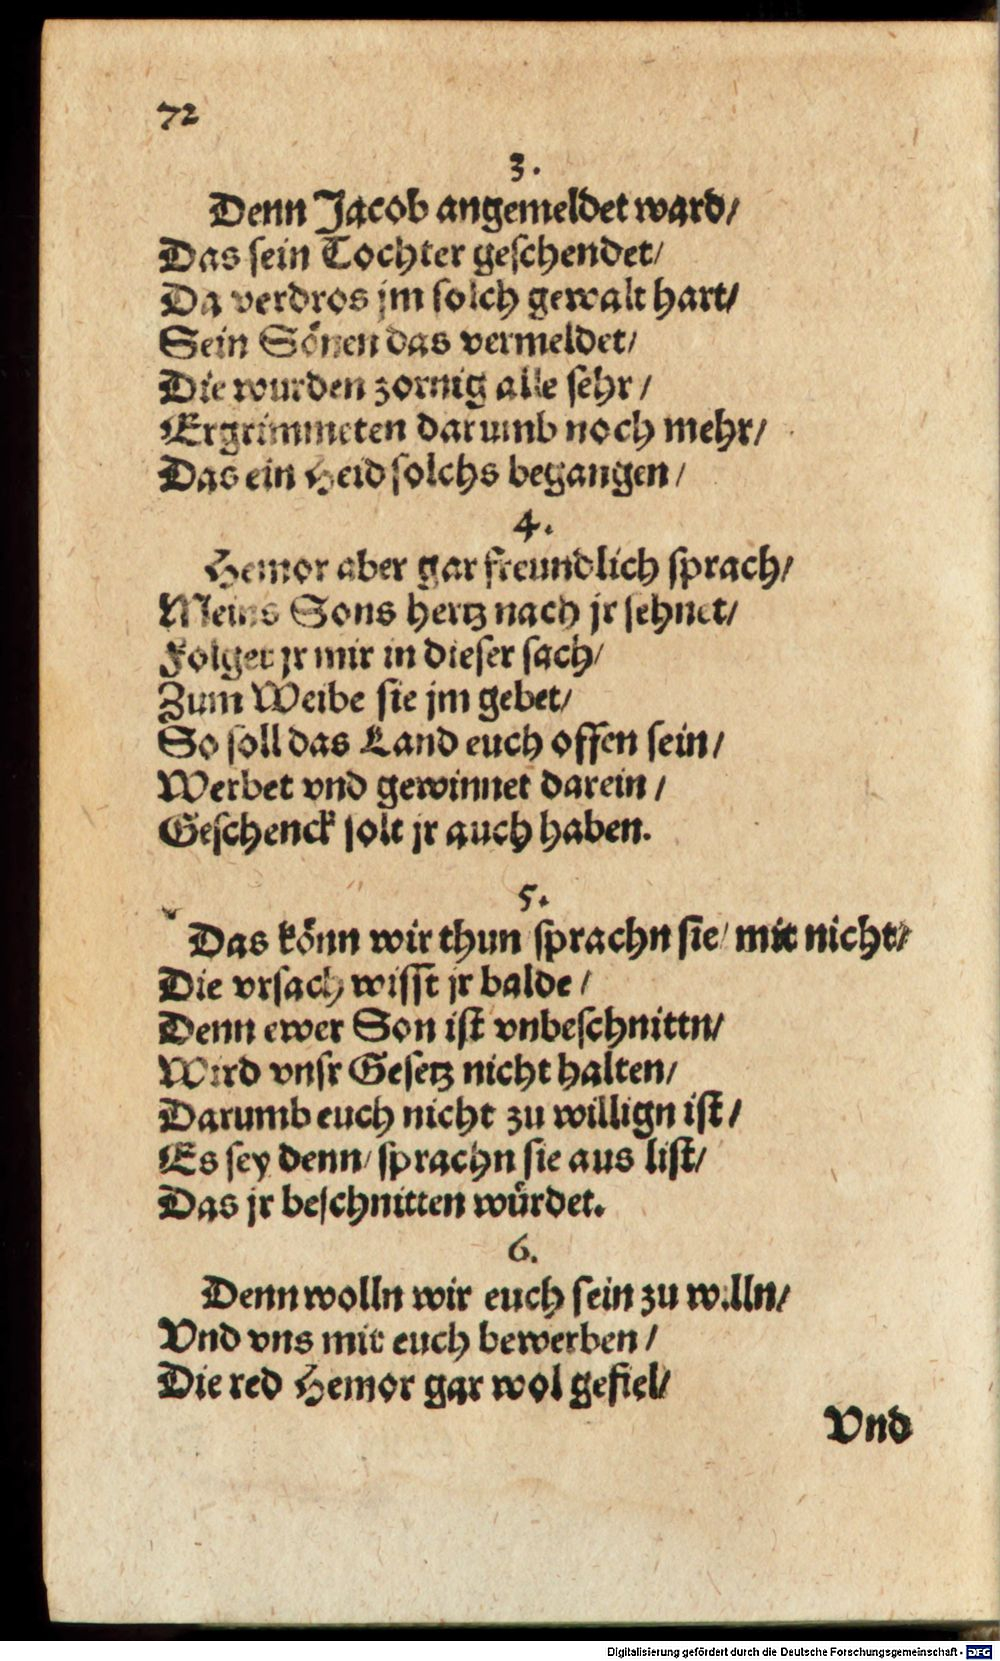 72
3.
Denn Jacob angemeldet ward/
Das sein Tochter geschendet/
Da verdros jm solch gewalt hart/
Sein Sönen das vermeldet/
Die wurden zornig alle sehr /
Ergrimmeten darumb noch mehr/
Das ein Heid solchs begangen /
4.
Hemor aber gar freundlich sprach/
Meins Sons hertz nach jr sehnet/
Folget jr mir in dieser sach/
Zum Weibe sie jm gebet/
So soll das Land euch offen sein/
Werbet vnd gewinnet darein /
Geschenck solt jr auch haben.
5.
Das könn wir thun sprachn sie/ mit nicht/
Die vrsach wisst jr balde /
Denn ewer Son ist vnbeschnittn/
Wird vnsr Gesetz nicht halten/
Darumb euch nicht zu willign ist/
Es sey denn/ sprachn sie aus list/
Das jr beschnitten würdet.
6.
Denn wolln wir euch sein zu willn/
Vnd vns mit euch bewerben /
Die red Hemor gar wol gefiel/
Vnd
Digitalisierung gefördert durch die Deutsche Forschungsgemeinschaft - DFG